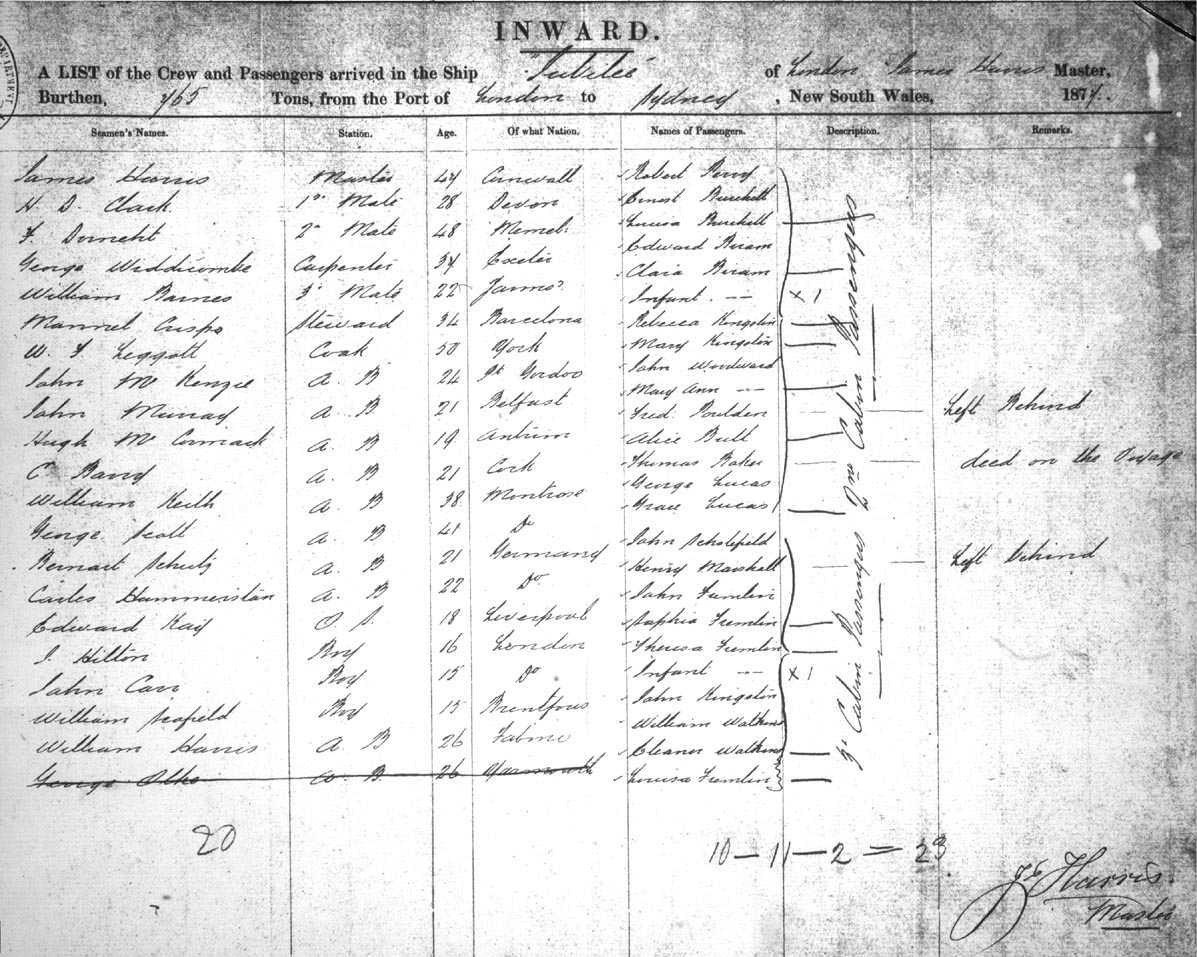 INWARD.
A LIST of the Crew and Passengers arrived in the Ship "Jubilee" of London James Harris Master,
Burthen, 765 Tons, from the Port of London to Sydney, New South Wales, 187
Seamen's Names. Station. Age. Of what Nation. Names of Passengers. Description. Remarks.
James Harris Master 44 Cornwall Robert Perry
H D Clark 1st Mate 28 Devon Ernest Burchell
F. 2nd Mate 48 Memel Louisa Burchell
Edward Biram
George Widdicombe Carpenter 34 Exeter Clara Biram
William Barnes 3d Mate 22 Infant - - X 1
Manuel Steward 34 Barcelona Rebecca Kingston
W. F. Leggott Cook 50 York Mary Kingston
John McKenzie A. B 24 John Woodward
Mary Ann - -
John Murray A. B 21 Belfast Fred Poulden Left Behind
Hugh McCormack A. B 19 Antrim Alice Bull
C Barry A. B 21 Cork Thomas Baker died on the Voyage
George Lucas
William Keith A. B 38 Montrose Grace Lucas
2nd Cabin Passengers
George Scott A. B 41 Do John Scholefield
Bernart Schutz A. B 21 Germany Henry Marshall Left Behind
Carles Hammerston A. B 22 Do John Fremlin
Edward Kay O S. 18 Liverpool Sophia Fremlin
J. Hilton Boy 16 London Theresa Fremlin
John Carr Boy 15 Do Infant - - X 1
William Scofield Boy 15 John Kingston
William Watkins
William Harris A. B 26 Eleanor Watkins
George A. B 26 Yarmouth Louisa Fremlin
Cabin Passengers
20
10 - 11 - 2 = 23
Harris.
Master